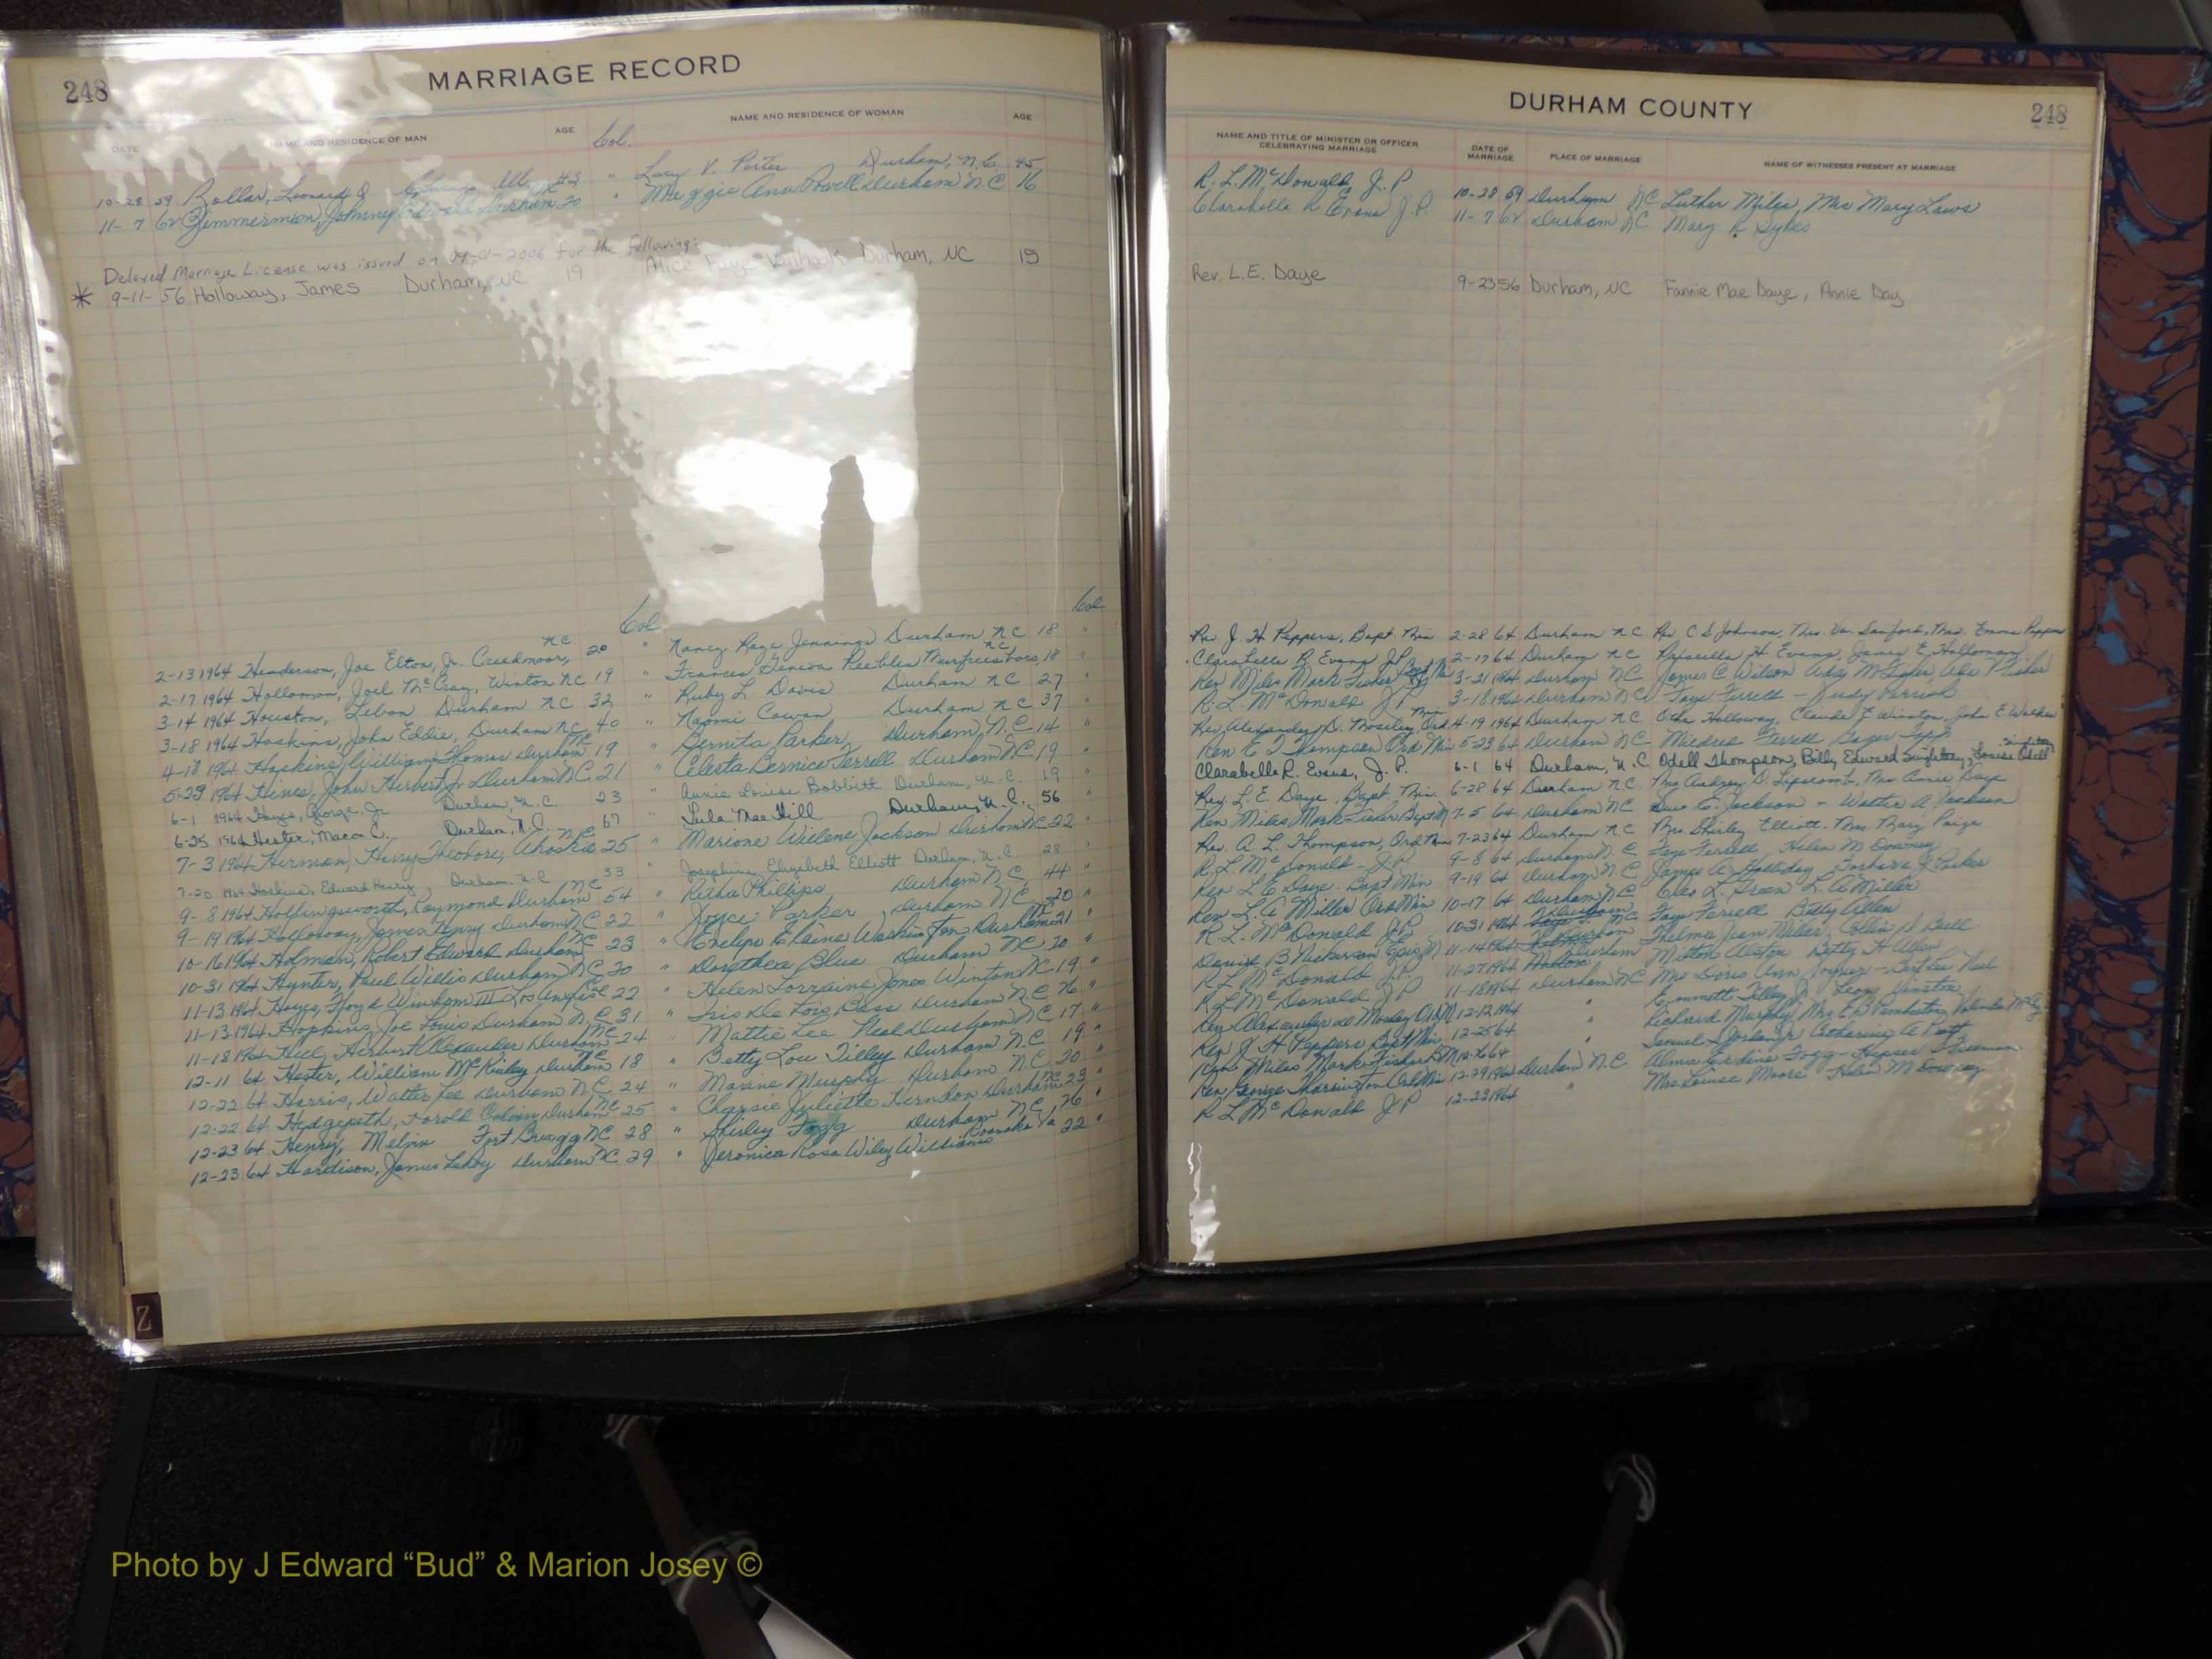 248
MARRIAGE RECORD
DATE NAME AND RESIDENCE OF MAN AGE Col. NAME AND RESIDENCE OF WOMAN AGE
10-28 59 Leonard Q " Lucy V. Porter Durham, N.C. 45
11-7 62 Zimmerman, Johnny Edward Durham NC 20 " Maggie Ann Powell Durham N.C. 16
Delayed Marriage License was issued on for the following:
* 9-11-56 Holloway, James Durham, NC 19 Alice Faye Durham, NC 19
Col Col
2-13 1964 Henderson, Joe Elton, Jr. Creedmoor, NC 20 " Nancy Raye Jennings Durham NC 18 "
2-17 1964 Holloman, Joel McCray, Winton NC 19 " Frances Geneva Peebles Murfreesboro, NC 18 "
3-14 1964 Houston, Lebon Durham NC 32 " Ruby L. Davis Durham NC 27 "
3-18 1964 Hoskins, John Eddie, Durham NC 40 " Naomi Cowan Durham NC 37 "
4-18 1964 Hopkins, William Thomas Durham NC 19 " Bernita Parker, Durham, N.C. 14 "
5-23 1964 Hines, John Herbert Jr. Durham NC 21 " Celesta Bernice Terrell Durham NC 19 "
6-1 1964 Hayes, George Jr Durham, N.C. 23 " Annie Louise Bobbitt Durham, N.C. 19 "
6-25 1964 Hester, Macon C. Durham, N.C. 67 " Lula Mae Hill Durham, N.C. 56 "
7-3 1964 Herman, Harry Theodore, Ahoskie NC 25 " Marione Wilene Jackson Durham NC 22 "
7-20 1964 Hoskins, Edward Henry, Durham, N.C 33 " Josephine Elizabeth Elliott Durham, N.C. 28 "
9-8 1964 Hollingsworth, Raymond Durham NC 54 " Retha Phillips Durham NC 44 "
9-19 1964 Holloway, James Henry Durham NC 22 " Joyce Parker Durham NC 20 "
10-16 1964 Holman, Robert Edward Durham NC 23 " Evelyn Elaine Washington Durham NC 21 "
10-31 1964 Hunter, Paul Willis Durham NC 20 " Dorothea Blue Durham NC 20 "
11-13 1964 Hayes, Floyd Windom III Los Angeles Cal 22 " Helen Lorraine Jones Winton NC 19 "
11-13 1964 Hopkins, Joe Louis Durham N.C. 31 " Iris De Lois Bass Durham N.C. 26 "
11-18 1964 Hill, Herbert Alexander Durham NC 24 " Mattie Lee Neal Durham NC 17 "
12-11 64 Hester, William McKinley Durham NC 18 " Betty Lou Tilley Durham N.C. 19 "
12-22 64 Harris, Walter Lee Durham N.C. 24 " Maxine Murphy Durham N.C. 20 "
12-22 64 Hedgepeth, Harold Calvin Durham NC 25 " Charsie Juliette Herndon Durham NC 23 "
12-23 64 Henry, Melvin Fort Bragg NC 28 " Shirley Fogg Durham N.C. 26 "
12-23 64 Hardison, James Leroy Durham NC 29 " Veronica Rosa Wiley Williams Roanoke Va 22 "
Z
DURHAM COUNTY
248
NAME AND TITLE OF MINISTER OR OFFICER CELEBRATING MARRIAGE DATE OF MARRIAGE PLACE OF MARRIAGE NAME OF WITNESSES PRESENT AT MARRIAGE
R. L. McDonald J. P 10-28 59 Durham NC Luther Miles, Mrs Mary Laws
Clarabelle R. Evans J.P. 11-7 62 Durham NC Mary R. Sykes
Rev. L.E. Daye 9-23 56 Durham, NC Fannie Mae Daye, Annie Day
Rev. J. H Peppers, Bapt. Min 2-28 64 Durham NC Rev. C S Johnson, Mrs. Va. Sanford, Mrs. Emma Peppers
Clarabelle R. Evans J.P. 2-17 64 Durham NC Priscilla H. Evans, James E. Holloman
Rev Miles Mark Fisher Bapt Min 3-21 1964 Durham NC James C Wilson Ada M Fisher, Ada Fisher
R. L. McDonald J P 3-18 1964 Durham NC Faye Ferrell - Judy
Rev Alexander D. Moseley, Ord Min 4-19 1964 Durham NC Otha Holloway, Claude F Winston, John E. Walker
Rev E. T Thompson Ord Min 5-23 64 Durham NC Mildred Ferrell
Clarabelle R. Evans, J.P. 6-1 64 Durham, N.C. Odell Thompson, Billy Edward Singletary, Louise Odell Singletary
Rev. L. E. Daye, Bapt Min. 6-28 64 Durham NC. Mrs Audrey D. Lipscomb, Mrs. Annie Daye
Rev Miles Mark Fisher Bapt M 7-5 64 Durham NC C. Jackson - Walter A. Jackson
Rev. A. L. Thompson, Ord Min 7-23 64 Durham N.C Mrs. Shirley Elliott - Mrs. Mary Paige
R. L. McDonald - J.P. 9-8 64 Durham N.C. Faye Ferrell Helen M Downey
Rev L E Daye. Bapt Min 9-19 64 Durham NC James A Holliday Barbara J. Parker
Rev L. A Miller Ord Min 10-17 64 Durham NC L. Green L. A Miller
R. L. McDonald J P 10-31 1964 Durham NC Faye Ferrell Betty Allen
B Nickerson M 11-14 1964 Durham Thelma Jean Miller, Bell
R L McDonald J.P 11-27 1964 Durham Milton Alston Betty H Allen
R L McDonald J P 11-18 1964 Durham NC Mrs Doris Ann Joyner - Neal
Rev Alexander D Moseley Ord M 12-12 1964 " Emmett Tilley Jr Leon Winston
Rev J. H Peppers Bapt Min 12-25 64 " Richard Murphy Mrs E B Pemberton
Rev Miles Mark Fisher B M 12-26 64 Samuel Catharine A
Rev George Tharrington Ord Min 12-29 1964 Durham N.C Alma Fogg -
R L McDonald J P 12-23 1964 " Mrs Louise Moore Helen M Downey
Photo by J Edward “Bud” & Marion Josey ©